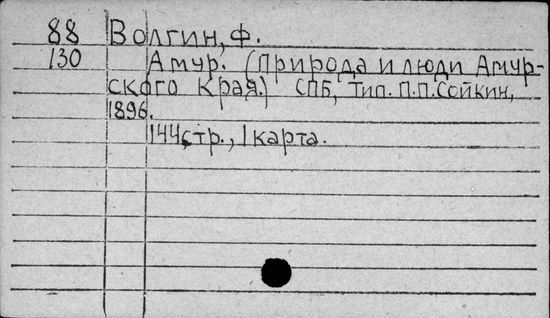 88 Волгин, Ф.
130 Амур. (Природа и люди Амур-
ского Края.) СПБ, Тип. П.П.Сойкин,
1896.
144 стр., 1 карта.